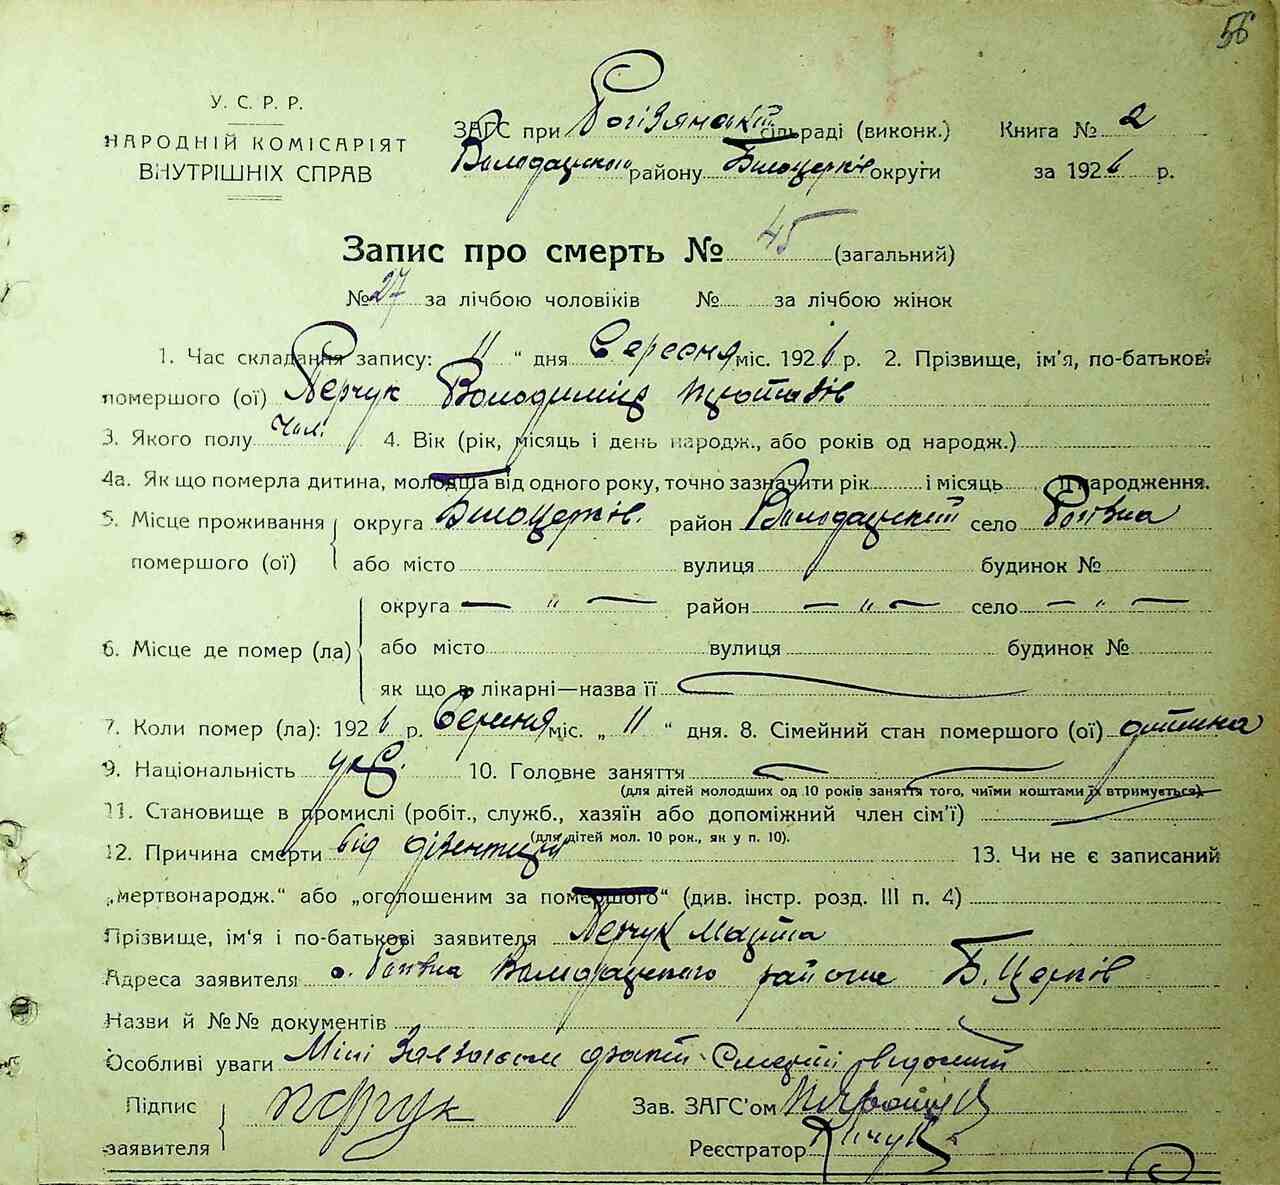 56
У. С. Р. Р.
НАРОДНІЙ КОМІСАРІЯТ
ВНУТРІШНІХ СПРАВ
ЗАГС при сільраді (виконк.) Книга № 2
району Білоцерків округи за 1926 р.
Запис про смерть № 45 (загальний)
№ 27 за лічбою чоловіків № за лічбою жінок
1. Час складання запису: 11 " дня Вересня міс. 1926 р. 2. Прізвище, ім'я, по-батькові
помершого (ої) Перчук Володимир
3. Якого полу Чол. 4. Вік (рік, місяць і день народж., або років од народж.)
4а. Як що померла дитина, молодша від одного року, точно зазначити рік і місяць її народження.
5. Місце проживання округа Білоцерків. район Володарський село
помершого (ої) або місто вулиця будинок №
округа — " — район — " — село — " —
6. Місце де помер (ла) або місто вулиця будинок №
як що в лікарні—назва її
7. Коли помер (ла): 1926 р. міс. „ 11 " дня. 8. Сімейний стан помершого (ої) дитина
9. Національність укр. 10. Головне заняття
(для дітей молодших од 10 років заняття того, чиїми коштами їх втримується).
11. Становище в промислі (робіт., служб., хазяїн або допоміжний член сім'ї)
(для дітей мол. 10 рок., як у п. 10).
12. Причина смерти від дізентирії 13. Чи не є записаний
„мертвонародж." або „оголошеним за помершого" (див. інстр. розд. III п. 4)
Прізвище, ім'я і по-батькові заявителя Перчук
Адреса заявителя с. Володарського району Б. Церків
Назви й №№ документів
Особливі уваги Мені факт смерти відомий
Підпис Зав. ЗАГС'ом
заявителя Реєстратор